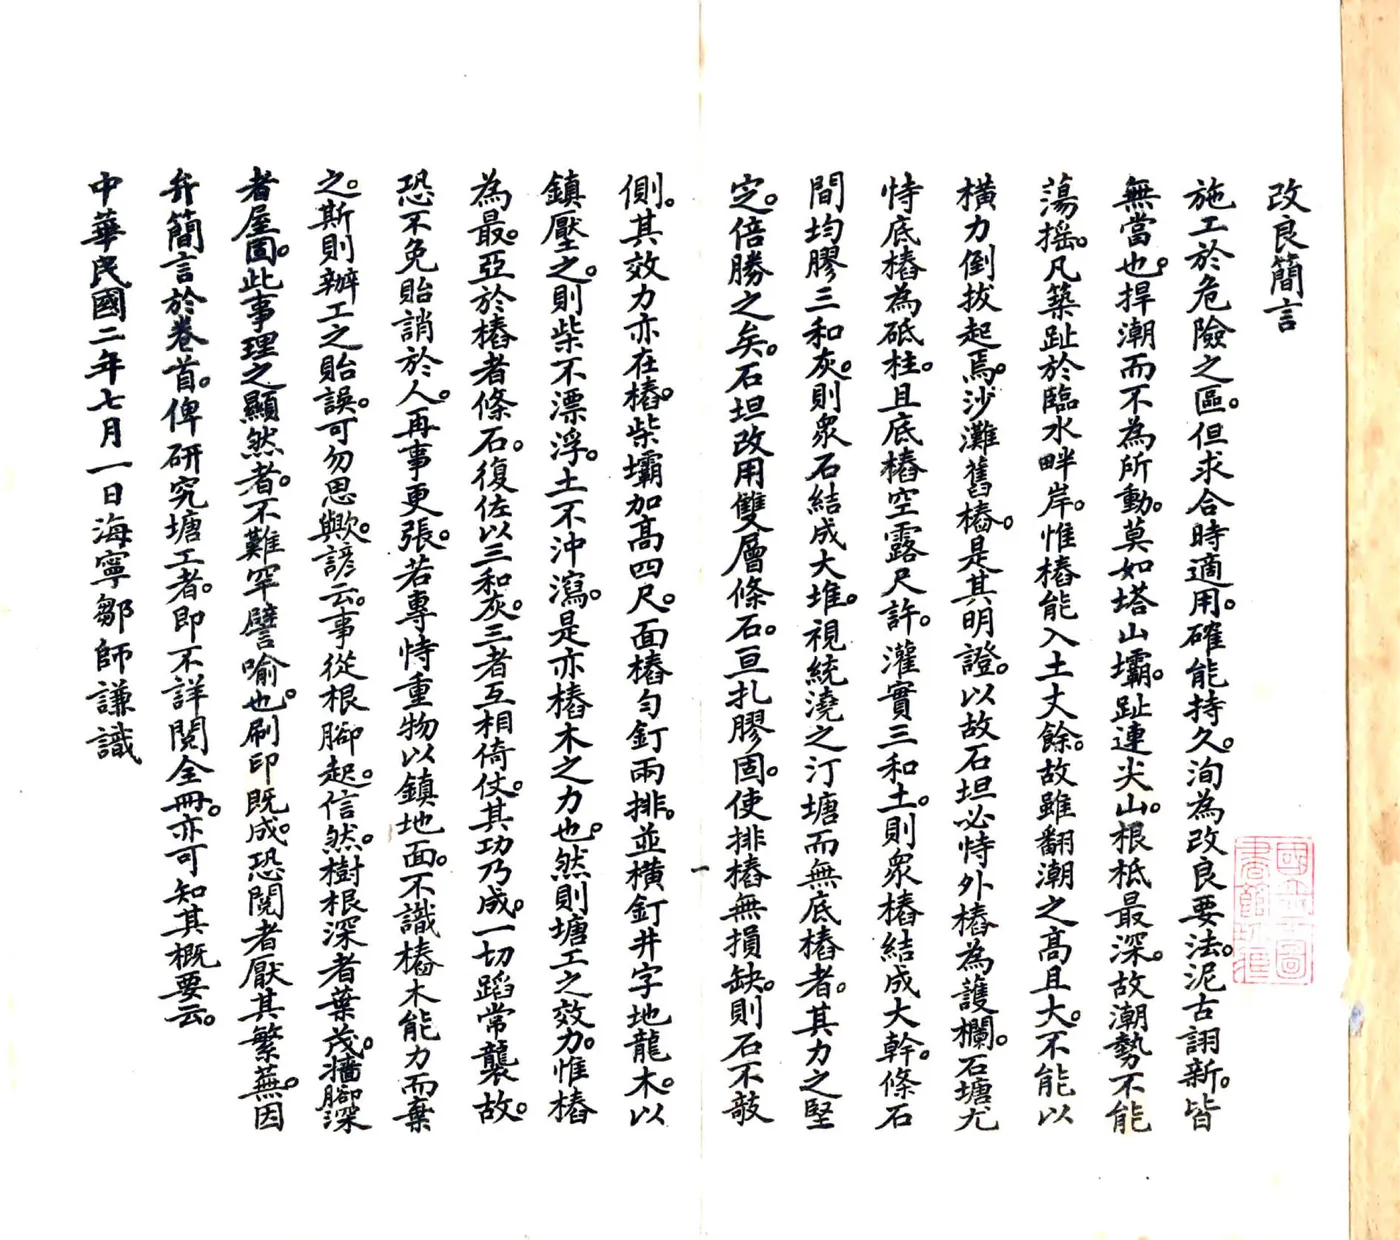 改良簡言
施工於危險之區。但求合時適用。確能持久。洵為改良要法。泥古詡新。皆
無當也。捍潮而不為所動。莫如塔山壩。趾連尖山。根柢最深。故潮勢不能
蕩搖。凡築趾於臨水畔岸。惟樁能入土丈餘。故雖翻潮之高且大。不能以
橫力倒拔起焉。沙灘舊樁。是其明證。以故石坦必恃外樁為護欄。石塘尤
恃底樁為砥柱。且底樁空露尺許。灌實三和土。則眾樁結成大幹。條石
間均膠三和灰。則眾石結成大堆。視統澆之汀塘而無底樁者。其力之堅
定。倍勝之矣。石坦改用雙層條石。亘扎膠固。使排樁無損缺。則石不敧
側。其效力亦在樁。柴壩加高四尺。面樁勻釘兩排。並橫釘井字地龍木。以
鎮壓之。則柴不漂浮。土不沖瀉。是亦樁木之力也。然則塘工之效力。惟樁
為最。亞於樁者條石。復佐以三和灰。三者互相倚仗。其功乃成。一切蹈常襲故。
恐不免貽誚於人。再事更張。若專恃重物以鎮地面。不識樁木能力而棄
之。斯則辦工之貽誤。可勿思歟。諺云。事從根腳起。信然。樹根深者葉茂。牆腳深
者屋固。此事理之顯然者。不難罕譬喻也。刷印既成。恐閱者厭其繁蕪。因
弁簡言於卷首。俾研究塘工者。即不詳閱全冊。亦可知其概要云。
中華民國二年七月一日海寧鄒師謙識
一